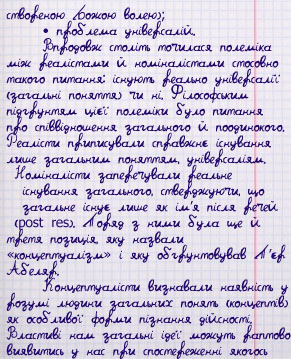 створеною Божою волею);
• проблема універсалій.
Впродовж століть точилася полеміка
між реалістами й номіналістами стосовно
такого питання: існують реально універсалії
(загальні поняття) чи ні. Філософським
підґрунтям цієї полеміки було питання
про співвідношення загального й поодинокого.
Реалісти приписували справжнє існування
лише загальним поняттям, універсаліям.
Номіналісти заперечували реальне
існування загального, стверджуючи, що
загальне існує лише як ім'я після речей
(post res). Поряд з ними була ще й
третя позиція, яку назвали
«концептуалізм» і яку обґрунтовував П'єр
Абеляр.
Концептуалісти визнавали наявність у
розумі людини загальних понять (концептів)
як особливої форми пізнання дійсності.
Властиві нам загальні ідеї можуть раптово
виявитись у нас при спостереженні якогось